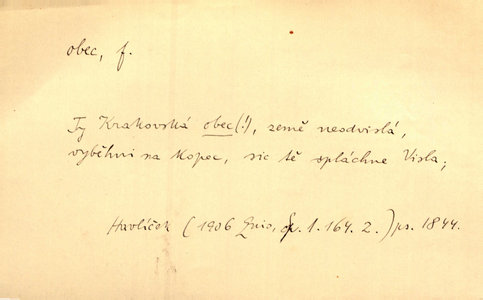 obec, f.
Ty Krakovská obec (!), země neodvislá,
vyběhni na kopec, sic tě spláchne Visla;
Havlíček (1906 1.164.2.) ps. 1844.